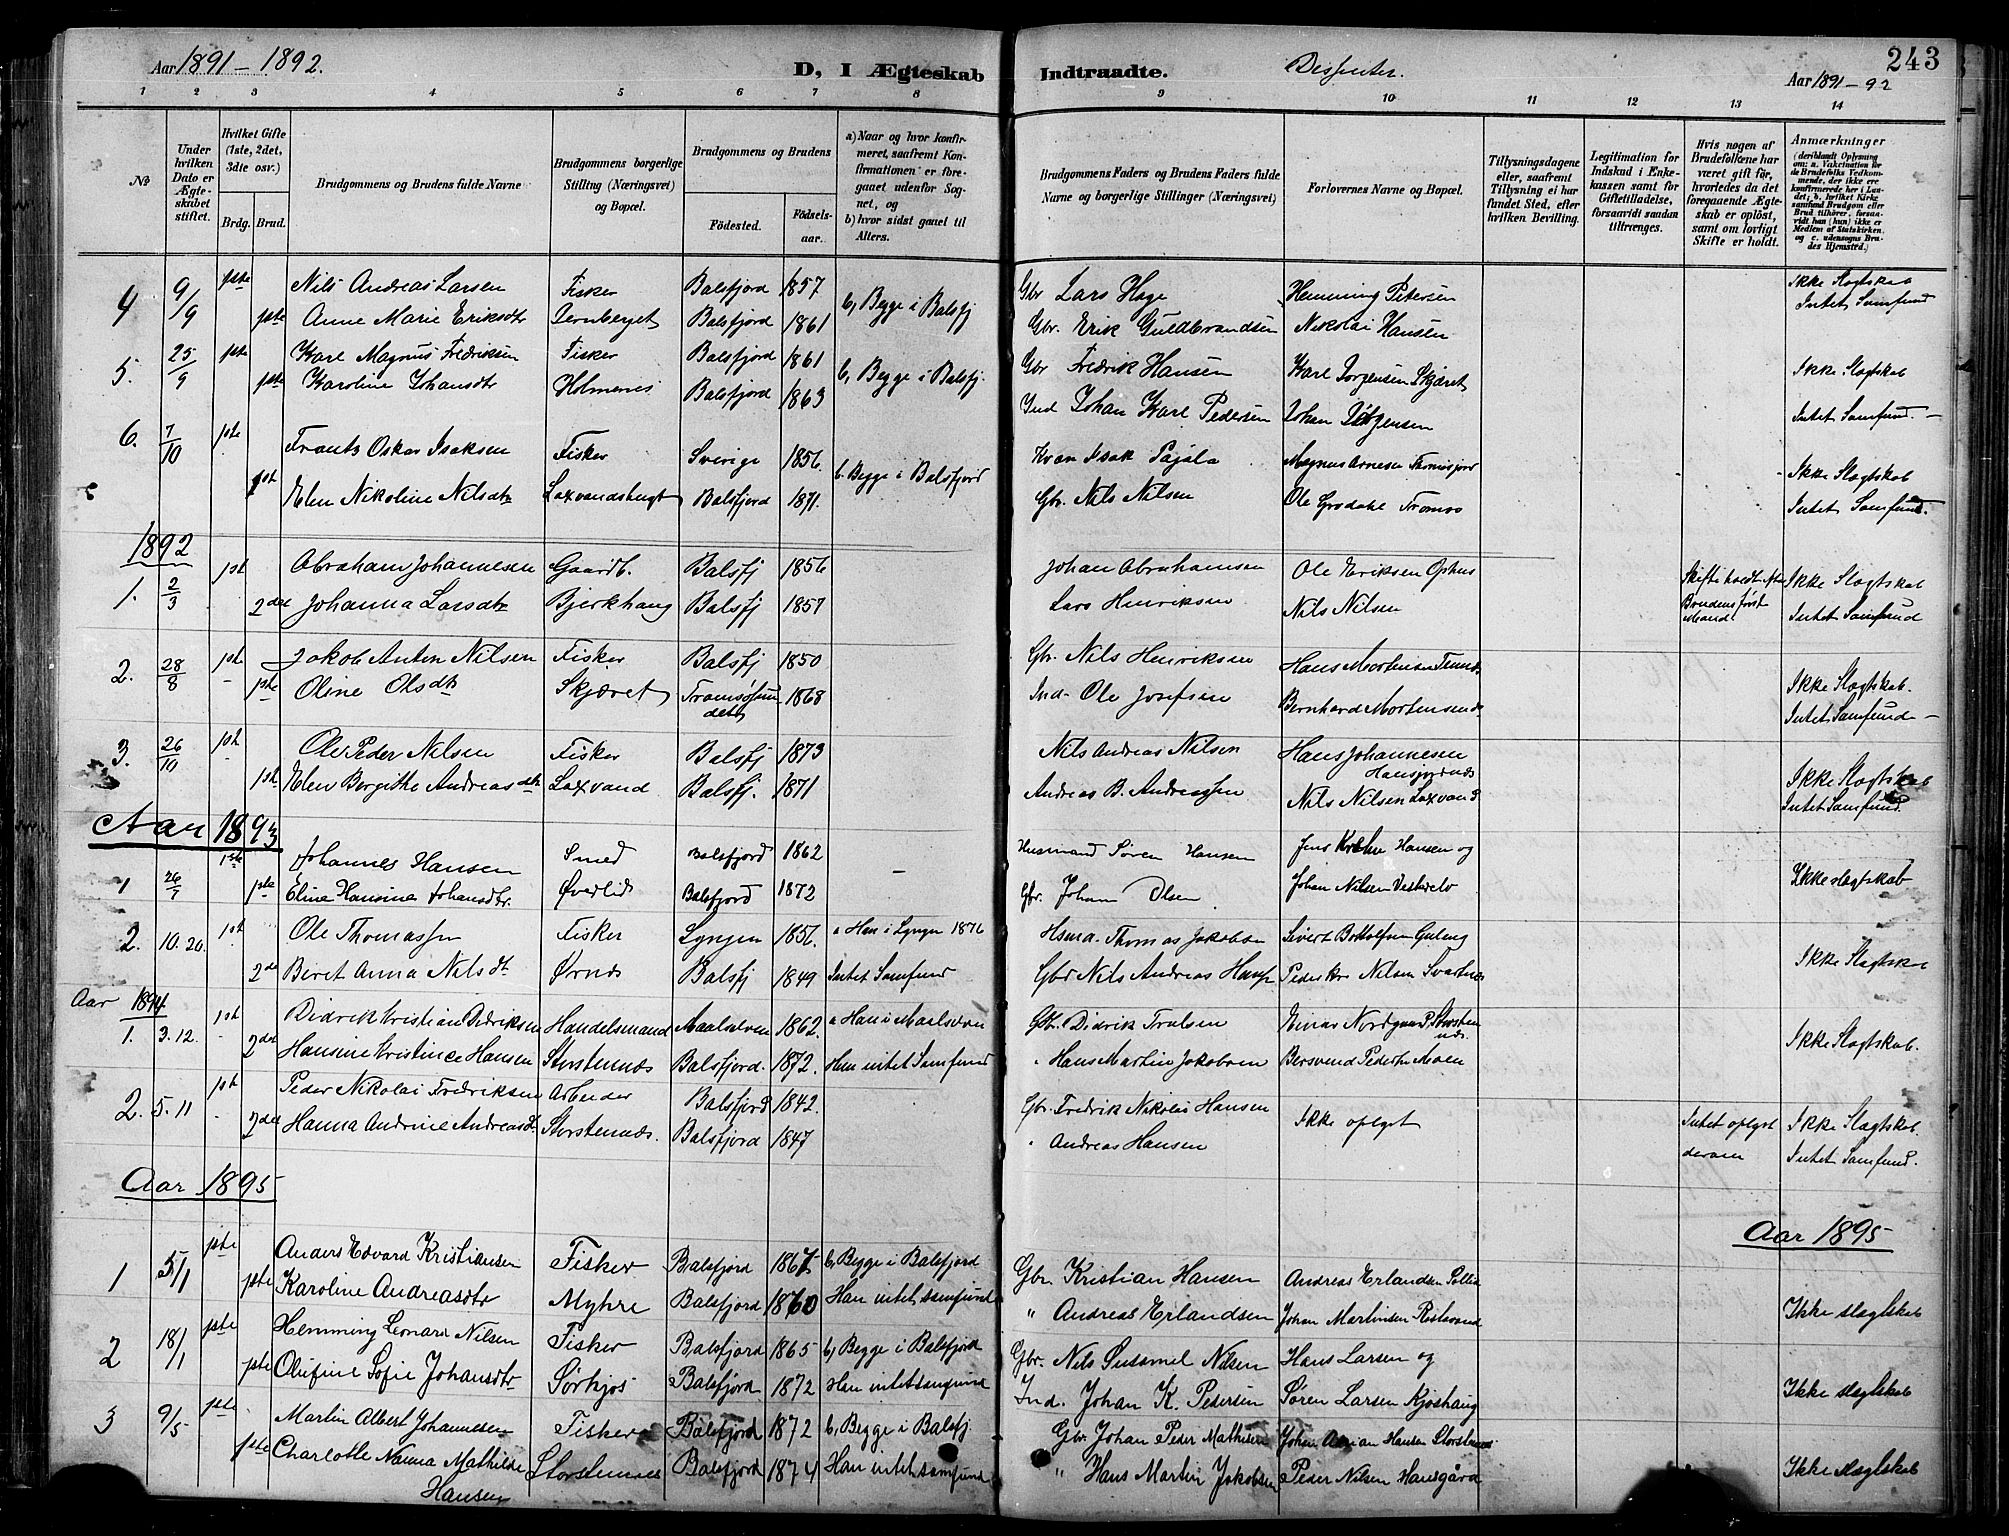 Aar 1891 - 1892.
D, I Ægteskab
Indtraadte.
Dissenter.
243
Aar 1891 - 92
1 2 3 4 5 6 7 8 9 10 11 12 13 14
№
Under hvilken Dato er Ægteskabet stiftet.
Hvilket Gifte (1ste, 2det, 3die osv.)
Brdg. Brud.
Brudgommens og Brudens fulde Navne
Brudgommens borgerlige Stilling (Næringsvei) og Bopæl.
Brudgommens og Brudens
Fødested. Fødselsaar.
a) Naar og hvor konfirmeret, saafremt Konfirmationen er foregaaet udenfor Sognet, og
b) hvor sidst gaaet til Alters.
Brudgommens Faders og Brudens Faders fulde Navne og borgerlige Stillinger (Næringsvei)
Forlovernes Navne og Bopæl.
Tillysningsdagene eller, saafremt Tillysning ei har fundet Sted, efter hvilken Bevilling.
Legitimation for Indskud i Enkekassen samt for Giftetilladelse, forsaavidt saadan tiltrænges.
Hvis nogen af Brudefolkene har været gift før, hvorledes da det foregaaende Ægteskab er opløst, samt om lovligt Skifte er holdt.
Anmærkninger
(deriblandt Oplysning om: a. Vakcination for de Brudefolks Vedkommende, der ikke ere konfirmerede her i Landet; b. hvilket Kirkesamfund Brudgom eller Brud tilhører, forsaavidt han (hun) ikke er Medlem af Statskirken, og c. udensogns Brudes Hjemsted.)
4 9/9 1ste Nils Andreas Larsen Fisker Balsfjord 1857 b, Begge i Balsfj Gbr Lars Hage Hemming Petersen Ikke Slagtskab
1ste Anne Marie Eriksdtr Jernberget Balsfjord 1861 Gbr. Erik Guldbrandsen Nikolai Hansen Intet Samfund
5. 25/9 1ste Karl Magnus Fredriksen Fisker Balsfjord 1861 b, Begge i Balsfj. Gbr Fredrik Hansen Karl Jørgensen Skjæret Ikke Slagtskab
1ste Karoline Johansdtr Holmenes Balsfjord 1863 Ind Johan Karl Pedersen Johan Jørgensen Intet Samfund. -
6. 7/10 1ste Frants Oskar Isaksen Fisker Sverige 1856. b. Begge i Balsfjord Kvæn Isak Pajala Magnus Arnesen Ikke Slagtskab
1st Elen Nikoline Nilsdtr Laxvandsbugt Balsfjord 1871. Gbr. Nils Nilsen Ole Grødahl Tromsø Intet Samfund.
1892
1. 2/3 1st Abraham Johannesen Gaardb. Balsfj 1856 Johan Abrahamsen Ole Eriksen Ophus Skifte holdt efter Ikke Slagtskab
2det Johanna Larsdtr Bjerkhaug Balsfj 1857 Lars Henriksen Nils Nilsen Brudens først Mand Intet Samfund
2. 28/8 1st Jakob Anton Nilsen Fisker Balsfj 1850 Gbr. Nils Henriksen Hans Mortensen Ikke Slagtskab.
1ste Oline Olsdtr Skjæret Tromsøsundet 1868 Ind. Ole Josefsen Bernhard Mortensen Intet Samfund -
3. 26/10 1st Ole Peder Nilsen Fisker Balsfj 1873 Nils Andreas Nilsen Hans Johannesen Ikke Slagtskab
1st Elen Bergithe Andreasdtr Laxvand Balsfj. 1871 Andreas B. Andreassen Nils Nilsen Laxvand Intet Samfund.
Aar 1893
1 26/7 1ste Johannes Hansen Smed Balsfjord 1862 - Husmand Søren Hansen Jens Hansen og Ikke slagtskab
1ste Eline Hansine Johansdtr. Øverlid Balsfjord 1872 Gbr. Johan Olsen Johan Nilsen
2. 10.20. 1st Ole Thomassen Fisker Lyngen 1856. a Han i Lyngen 1876 Hsma. Thomas Jakobsen Sivert Bottolfsen Ikke Slagtskab
2de Beret Anna Nilsdtr Ørnæs Balsfj 1849 Intet Samfund Gbr Nils Andreas Hans. Peder Kr Nilsen Svartnes
Aar 1894
1. 3.12. 1st Didrik Kristian Didriksen Handelsmand Maalselven 1862. a Han i Maalselven Gbr. Didrik Trulsen Einar Nordgaard Storstennæs. Ikke Slagtskab.
2det Hansine Kristince Hansen Storstennæs Balsfjord. 1872. Han intet Samfund " Hans Martin Jakobsen Bersvend Pedersen Moen
2. 5.11 1st Peder Nikolai Fredriksen Arbeider Balsfjord 1842. Gbr. Fredrik Nikolai Hansen Ikke oplyst Intet oplyst Ikke Slagtskab.
2det Hanna Andrine Andreasdt. Storstennæs. Balsfjord 1847 " Andreas Hansen derom Intet Samfund.
Aar 1895
Aar 1895
1 5/1 1ste Anders Edvard Kristiansen Fisker Balsfjord 1867 b, Begge i Balsfjord Gbr. Kristian Hansen Andreas Erlandsen Ikke slagtskab
1ste Karoline Andreasdtr Myhre Balsfjord 1870 Han intet samfund " Andreas Erlandsen Johan Martinsen
2 18/1 1ste Hemming Leonard Nilsen Fisker Balsfjord 1865 b, Begge i Balsfjord Gbr. Nils Susamel Nilsen Hans Larsen og Ikke slagtskab
1ste Olufine Sofie Johansdtr Sørkjos Balsfjord 1872 Han intet samfund Ind. Johan K. Pedersen Søren Larsen Kjoshaug
3 9/5 1ste Martin Albert Johannesen Fisker Balsfjord 1872 b, Begge i Balsfj. Gbr. Johan Peder Mathisen Johan Adrian Hansen Storstennes Ikke slagtskab
1ste Charlotte Nanna Mathilde Hansen Storstennæs Balsfjord 1874 Han intet samfund " Hans Martin Jakobsen Peder Nilsen Hansgård